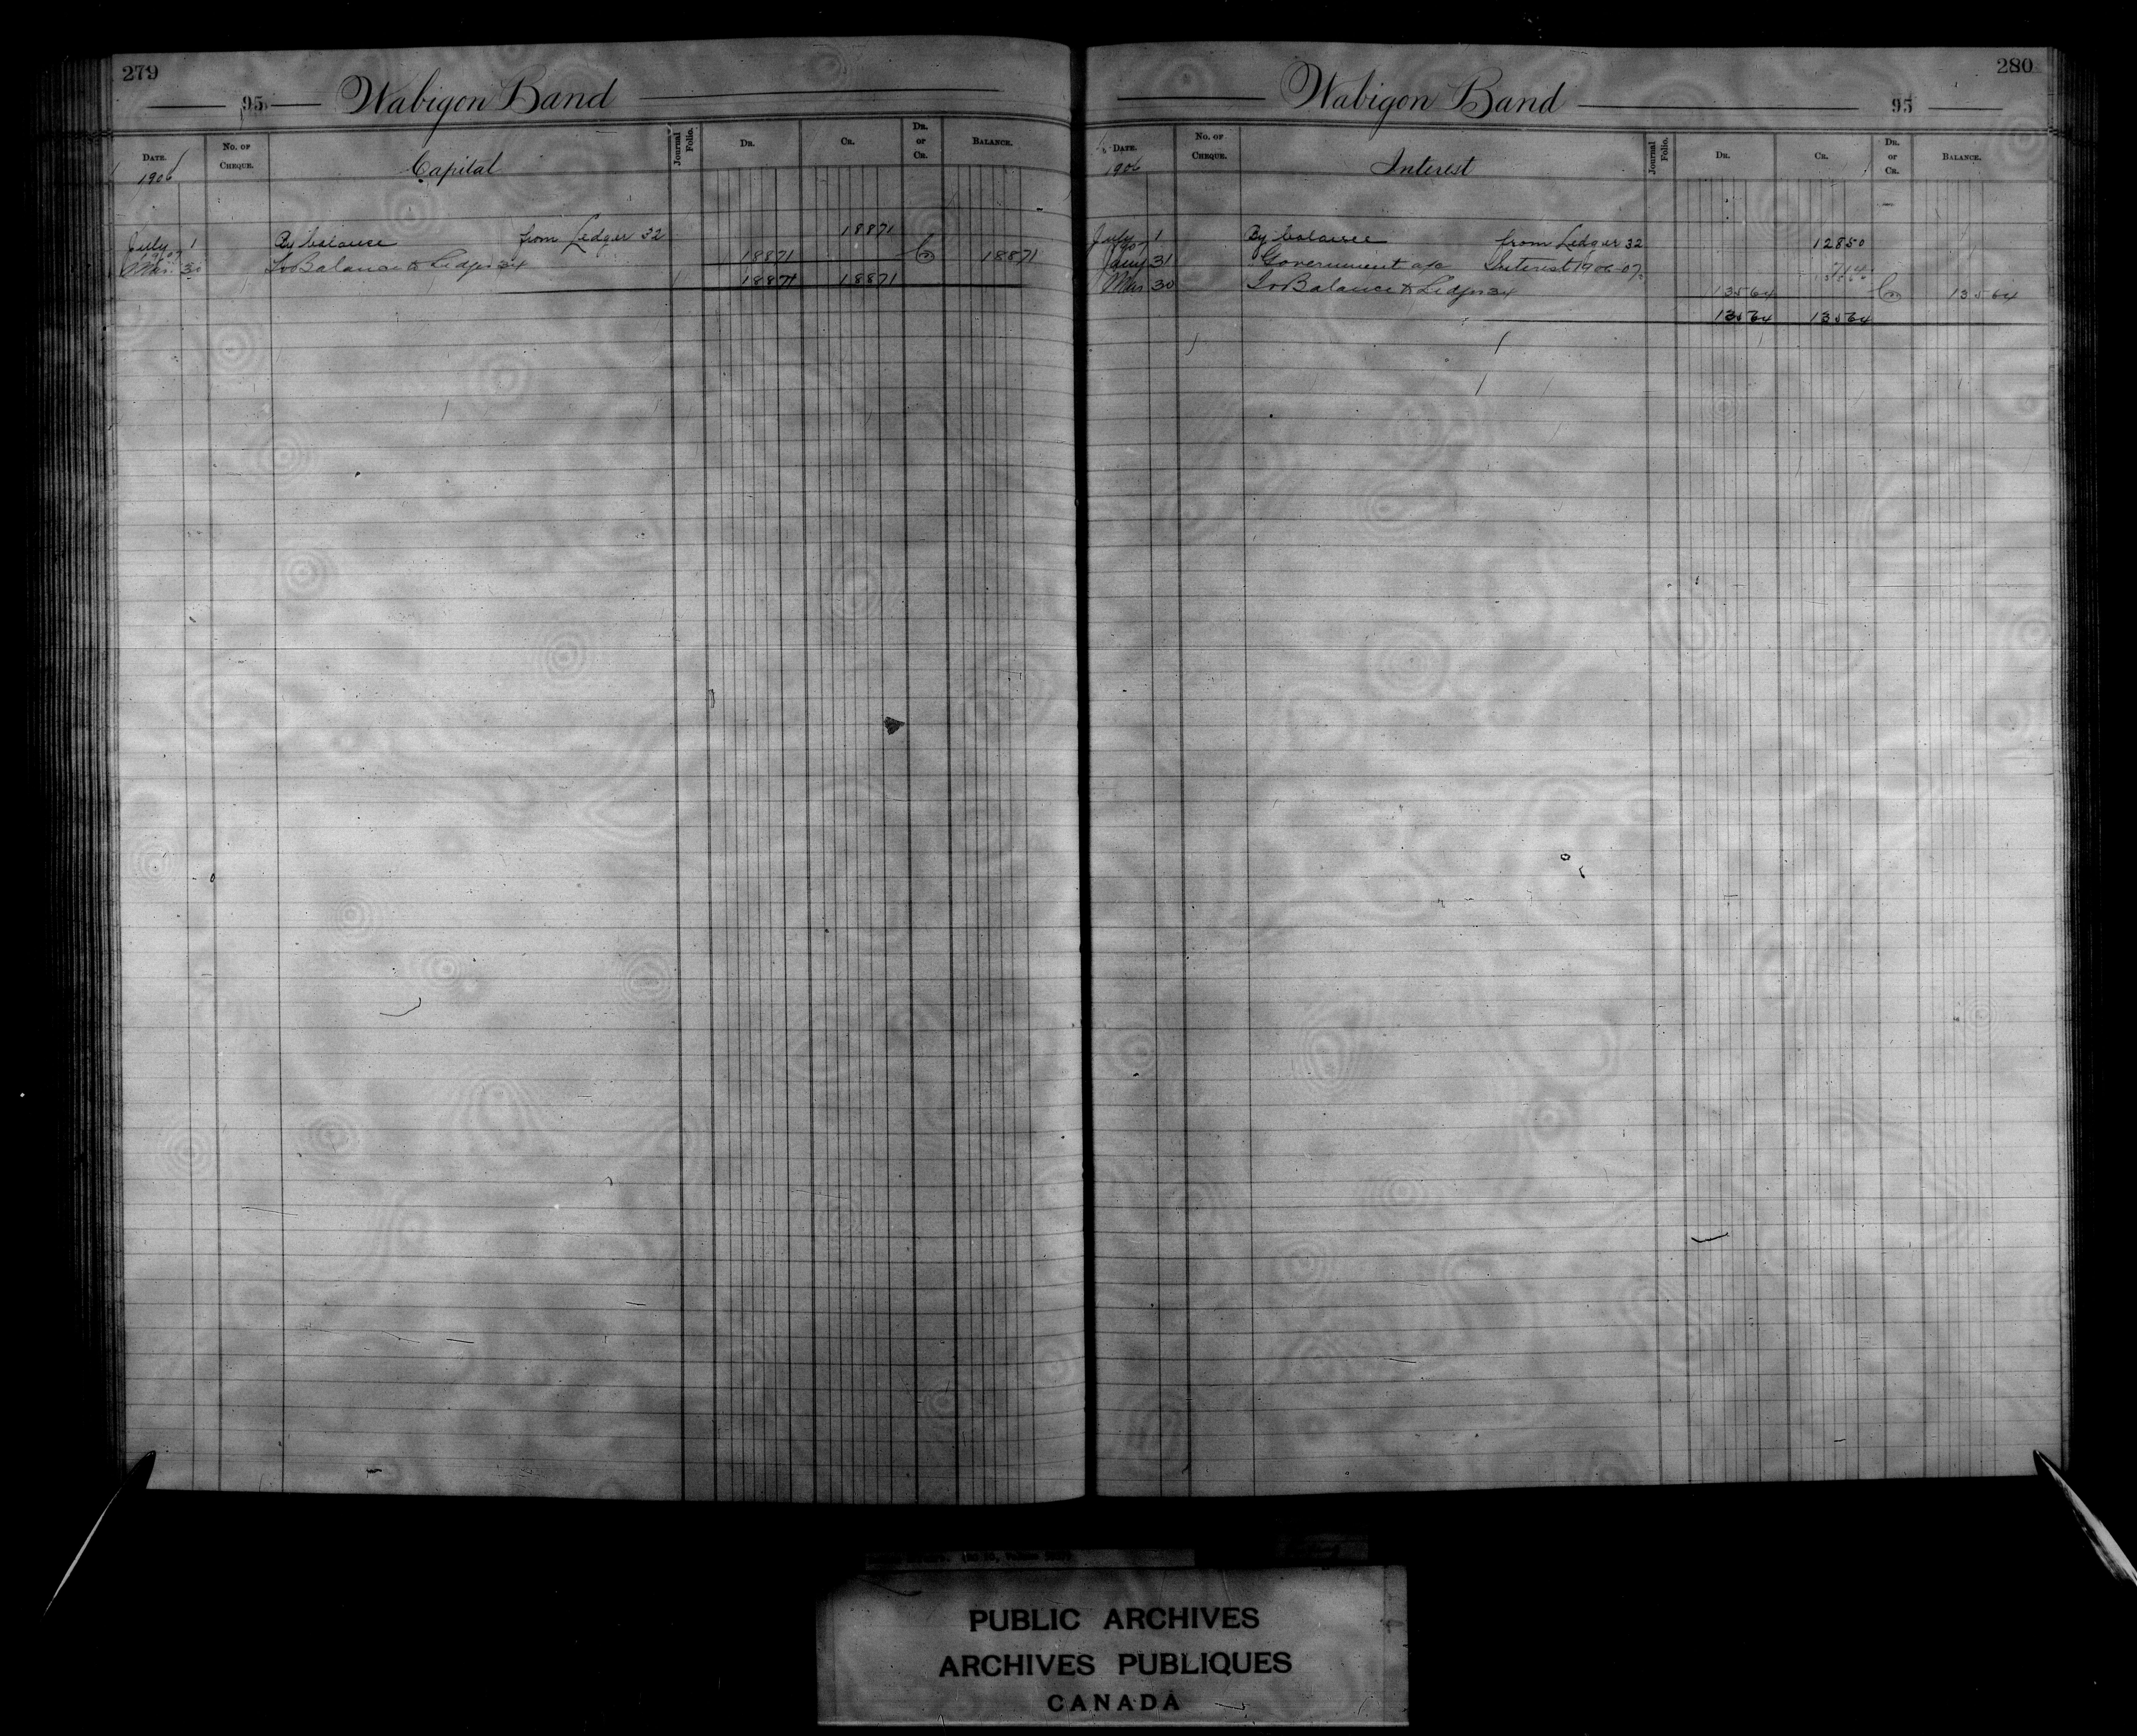 279
95 Wabigon Band
DATE. No. OF CHEQUE. Capital Journal Folio. DR. CR. DR. or CR. BALANCE.
1906
July 1 By balance from Ledger 32 18871
1907
Mar. 30 To Balance to Ledger 34 18871 Cr 18871
18871 18871
280
Wabigon Band 95
DATE. No. OF CHEQUE. Interest Journal Folio. DR. CR. DR. or CR. BALANCE.
1906
July 1 By balance from Ledger 32 12850
1907
Jany 31 " Government a/c Interest 1906-07 714
Mar 30 To Balance to Ledger 34 13564 Cr 13564
13564 13564
PUBLIC ARCHIVES
ARCHIVES PUBLIQUES
CANADA